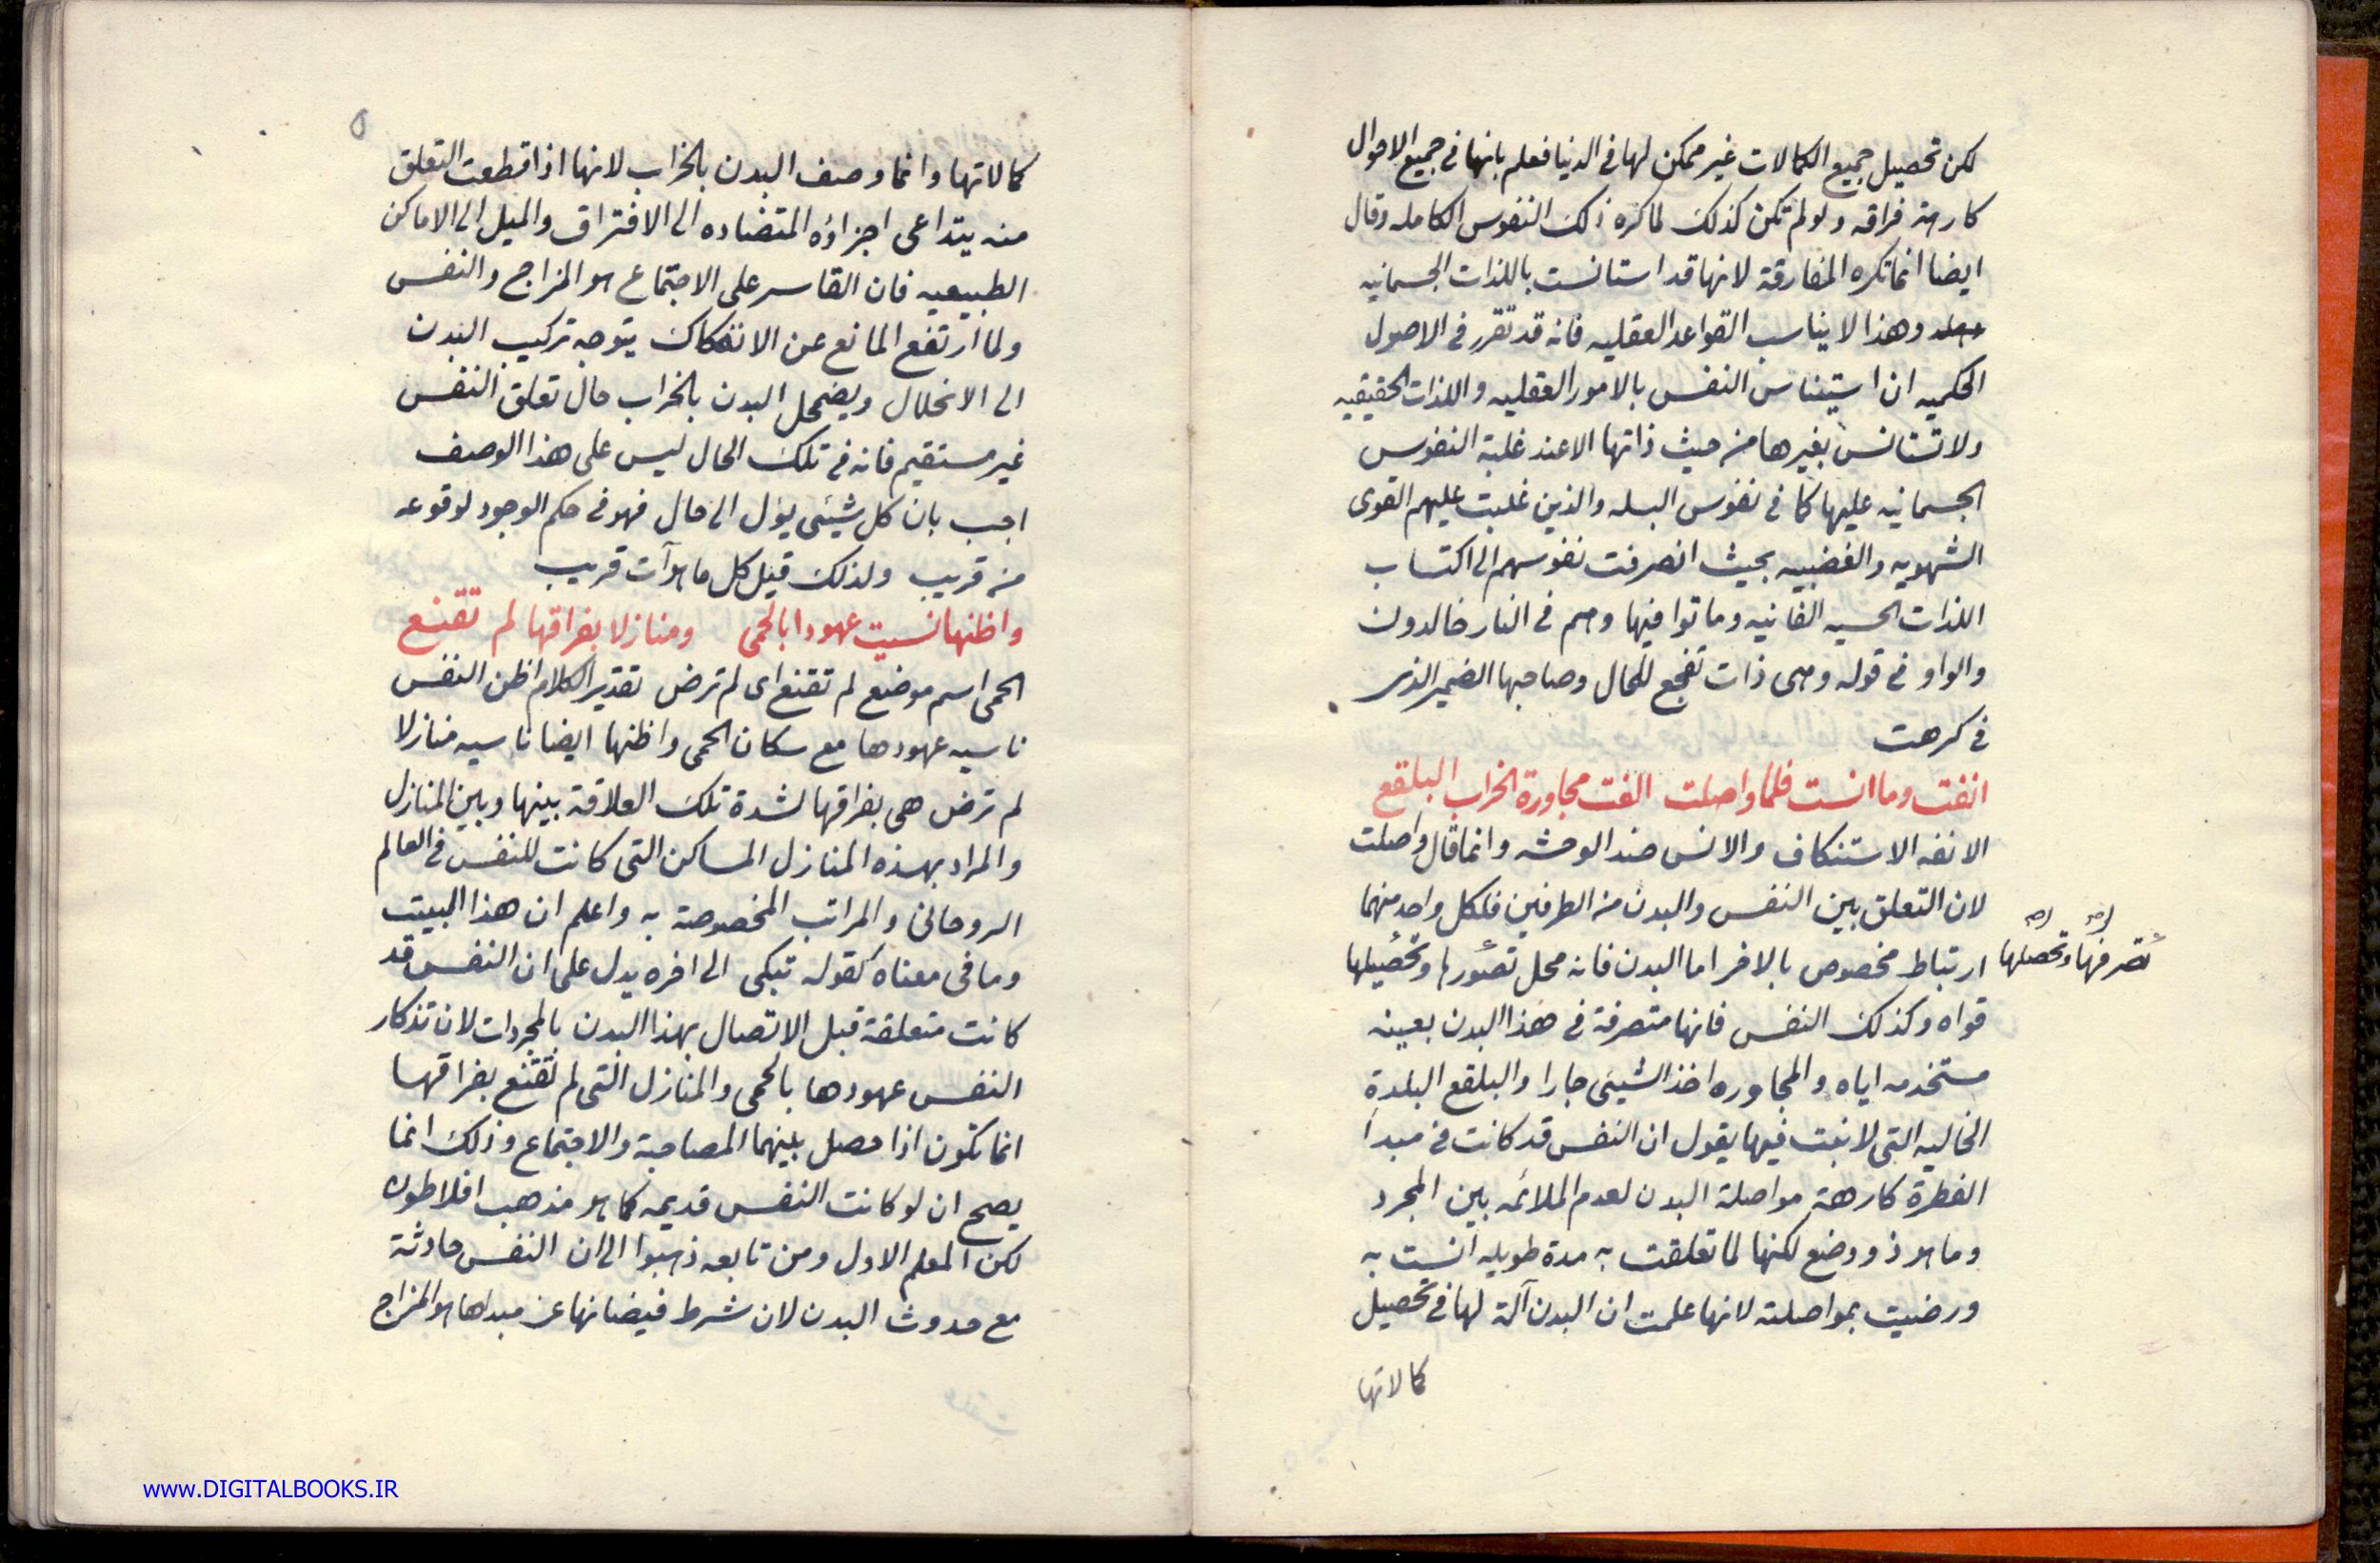 لكن تحصيل جميع الكمالات غير ممكن لها فى الدنيا فعلم بانها فى جميع الاحوال
كارهة فراقه ولو لم تكن كذلك لما كره ذلك النفوس الكامله وقال
ايضا انما تكره المفارقة لانها قد استانست باللذات الجسمانيه
وهذا لا يناسب القواعد العقليه فانه قد تقرر فى الاصول
الحكميه ان استيناس النفس بالامور العقليه واللذات الحقيقيه
ولا تستانس بغيرها من حيث ذاتها الا عند غلبة النفوس
الجسمانيه عليها كما فى نفوس البله والذين غلبت عليهم القوى
الشهويه والغضبيه بحيث انصرفت نفوسهم الى اكتساب
اللذات الحسيه الفانيه وماتوا فيها وهم فى النار خالدون
والواو فى قوله وهى ذات تفجع للحال وصاحبها الضمير الذى
فى كرهت
انفت وما انست فلما واصلت الفت مجاورة الخراب البلقع
الانفه الاستنكاف والانس ضد الوحشه وانما قال واصلت
لان التعلق بين النفس والبدن من الطرفين فلكل واحد منهما
ارتباط مخصوص بالاخر اما البدن فانه محل تصورها وتحصيلها
تصرفها وتحصلها
قواه وكذلك النفس فانها متصرفة فى هذا البدن بعينه
مستخدمه اياه والمجاوره اخذ الشيئى جارا والبلقع البلدة
الخاليه التى لا نبت فيها يقول ان النفس قد كانت فى مبدأ
الفطرة كارهة مواصلة البدن لعدم الملائمه بين المجرد
وما هو ذو وضع لكنها لما تعلقت به مدة طويله أنست به
ورضيت بمواصلته لانها علمت ان البدن آلة لها فى تحصيل
كمالاتها
٥
كمالاتها وانما وصف البدن بالخراب لانها اذا قطعت التعلق
منه يتداعى اجزاؤه المتضاده الى الافتراق والميل الى الاماكن
الطبيعيه فان القاسر على الاجتماع هو المزاج والنفس
ولما ارتفع المانع عن الانفكاك يتوجه تركيب البدن
الى الانحلال ويضمحل البدن بالخراب حال تعلق النفس
غير مستقيم فانه فى تلك الحال ليس على هذا الوصف
اجب بان كل شيئى يؤل الى حال فهو فى حكم الوجود لوقوعه
من قريب ولذلك قيل كل ما هو آت قريب
واظنها نسيت عهودا بالحمى ومنازلا بفراقها لم تقنع
الحمى اسم موضع لم تقنع اى لم ترض تقدير الكلام اظن النفس
ناسيه عهودها مع سكان الحمى واظنها ايضا ناسيه منازلا
لم ترض هى بفراقها لشدة تلك العلاقة بينها وبين المنازل
والمراد بهذه المنازل المساكن التى كانت للنفس فى العالم
الروحانى والمراتب المخصوصة به واعلم ان هذا البيت
وما فى معناه كقوله تبكى الى اخره يدل على ان النفس قد
كانت متعلقة قبل الاتصال بهذا البدن بالمجردات لان تذكار
النفس عهودها بالحمى والمنازل التى لم تقنع بفراقها
انما تكون اذا حصل بينهما المصاحبة والاجتماع وذلك انما
يصح ان لو كانت النفس قديمه كما هو مذهب افلاطون
لكن المعلم الاول ومن تابعه ذهبوا الى ان النفس حادثة
مع حدوث البدن لان شرط فيضانها عن مبداها هو المزاج
www.DIGITALBOOKS.IR